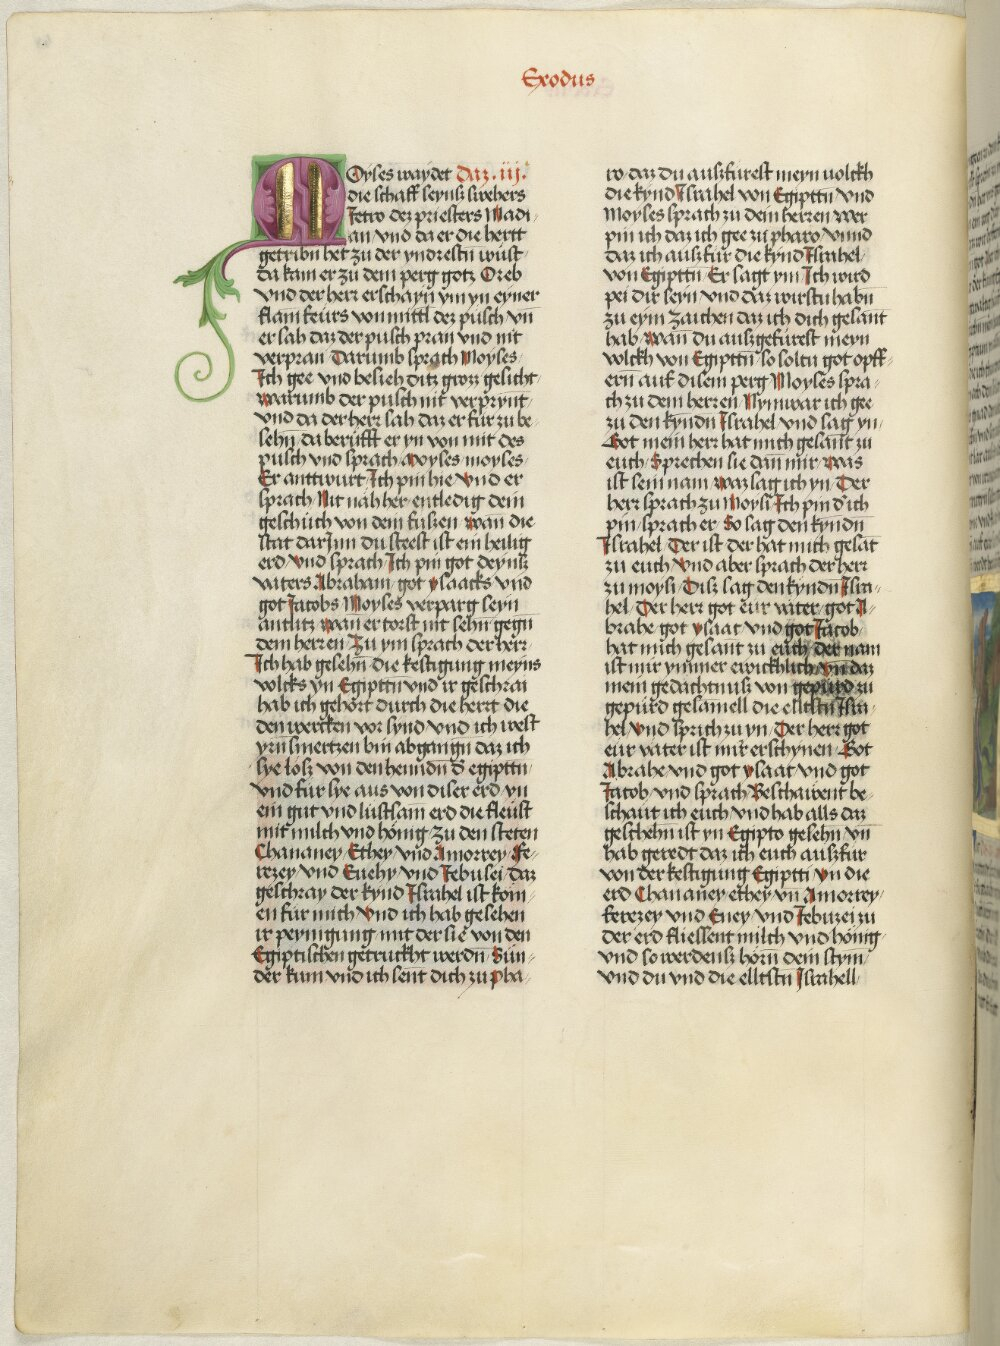 Exodus
MOyses waydet Daz .iij.
die schaff seynß swehers
Jetro dez priesters Madi-
an/ vnd da er die hertt
getribn het zu der yndrestn wust
da kam er zu dem perg gotz Oreb
vnd der herr erschayn ym yn eyner
flam feurs von mittl dez pusch vn̄
er sah daz der pusch pran vnd nit
verpran Darumb sprach Moyses/
Ich gee vnd besieh ditz groz gesicht
warumb der pusch nit verprynt/
vnd da der herr sah daz er für zu be-
sehn/ da berüfft er yn von mit des
pusch vnd sprach Moyses moyses/
Er anttwurt Ich pin hie vnd er
sprach Nit nah her/ entledig dein
geschüch von dem fuszen wan die
stat darJnn du steest ist ein heilig
erd vnd sprach Ich pin got deynß
vaters Abraham/ got ysaacks vnd
got Jacobs Moyses verparg seyn
antlitz wan er torst nit sehn gegn
dem herren Zu ym sprach der herr/
Ich hab gesehn die kestigung meyns
volcks yn Egipttn vnd ir geschrai
hab ich gehört durch die hertt die
den wercken vor synd vnd ich west
yrn smertzen bin abgangn daz ich
sye losz von den henndn d̄ egipttn/
vnd für sye aus von diser erd yn
ein gut vnd lustsam erd die fleust
mit milch vnd hönig/ zu den steten
Chananey/ Ethey vnd Amorrey/ Fe-
rezey vnd Euehy vnd Jebusei daz
geschray der kynd Israhel ist kom-
en für mich vnd ich hab gesehen
ir peynigung/ mit der sie von den
Egiptischen getruckht werdn/ Sun-
der kum vnd ich sent dich zu pha-
ro daz du auszfurest meyn volckh
die kynd Israhel von Egipttn/ vnd
Moyses sprach zu dem herren wer
pin ich daz ich gee zu pharo/ vnnd
daz ich auszfür die kynd Israhel/
von Egipttn/ Er sagt ym Ich wird
pei dir seyn vnd daz wirstu habn
zu eym zaichen daz ich dich gesant
hab/ wan du auszgefürest meyn
volckh von Egipttn so soltu got opff-
ern auf disem perg Moyses spra-
ch zu dem herren Nymwar ich gee
zu den kyndn Israhel vnd sag yn/
Got meinr herr hat mich gesant zu
euch/ Sprechen sie dan mir/ was
ist sein nam waz sag ich yn Der
herr sprach zu Moysi Ich pin d' ich
pin/ sprach er So sag den kyndn
Israhel Der ist der hat mich gesāt
zu euch vnd aber sprach der herr
zu moysi Disz sag den kyndn Isra-
hel/ Der herr got eur vater/ got A-
brahe got ysaac vnd got Jacob/
hat mich gesant zu euch/ der nam
ist mir ymmer ewickhlich vn daz
mein gedachtnusz von gepurd zu
gepurd gesamell die elltstn Isra-
hel/ vnd sprich zu yn Der herr got
eur vater ist mir erschynen/ Got
Abrahe vnd got ysaac vnd got
Jacob vnd sprach Beschawent be-
schaut ich euch vnd hab alls daz
geschehn ist yn Egipto gesehn vn̄
hab geredt daz ich euch auszfur
von der kestigung Egiptti yn die
erd Chananey ethey vn̄ Amorrey/
ferezey vnd Euey/ vnd Jebuzei zu
der erd fliessent milch vnd hönig/
vnd so werdensz hörn dein stym/
vnd du vnd die elltstn Israhell